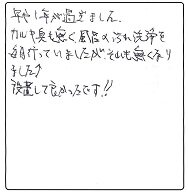 早や1年が過ぎました.
カルや臭も無く風呂の汚れ洗浄を
毎月行っていましたがそれも無くなり
ました↑
設置して良かったです!!